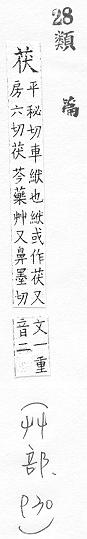 28
類篇
茯
平秘切車紱也紱或作茯又
房六切茯苓藥艸又鼻墨切
文一重
音二
(艸部. P30)